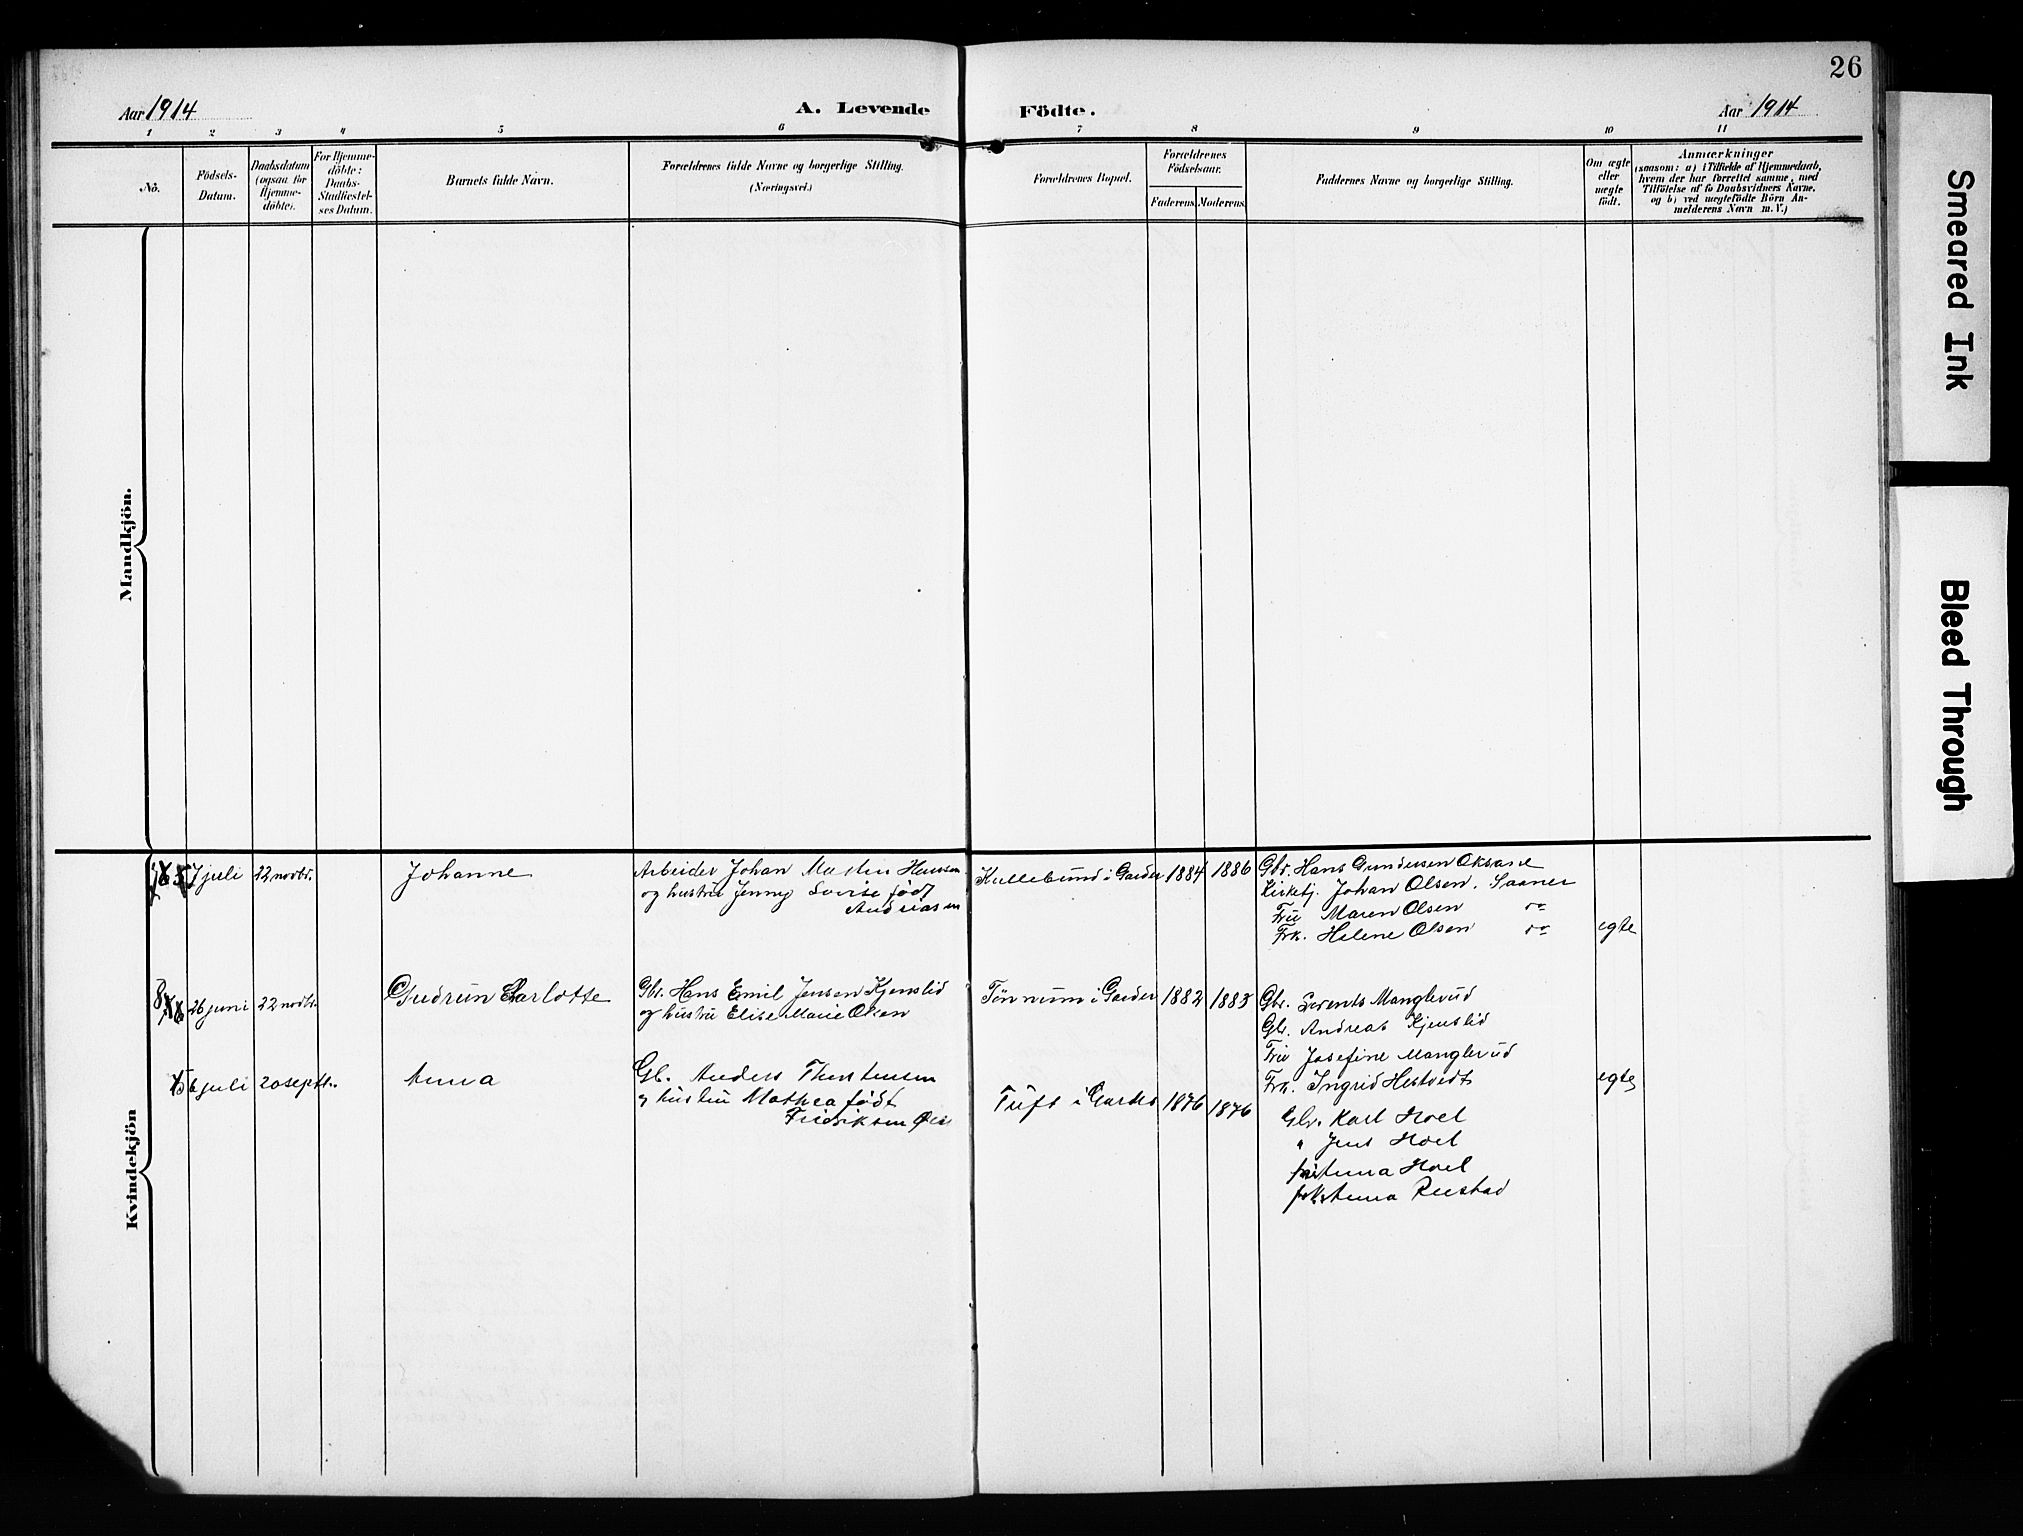 26
Aar 1914
A. Levende
Födte.
Aar 1914
1 2 3 4 5 6 7 8 9 10 11
No.
Födsels-
Datum.
Daabsdatum
(ogsaa for
Hjemme-
döbte).
For Hjemme-
döbte:
Daabs-
Stadfæstel-
ses Datum.
Barnets fulde Navn.
Forældrenes fulde Navne og borgerlige Stilling.
(Næringsvei.)
Forældrenes Bopæl.
Forældrenes
Födselsaar.
Faderens. Moderens.
Faddernes Navne og borgerlige Stilling.
Om ægte
eller
uægte
födt.
Anmærkninger
(saasom: a) i Tilfælde af Hjemmedaab,
hvem der har forrettet samme, med
Tilföielse af to Daabsvidners Navne,
og b) ved uægtefödte Börn An-
melderens Navn m. V.)
Mandkjön.
Kvindekjön
7 juli
22 novbr.
Johanne
Arbeider Johan Martin Hansen
og hustru Jenny Lovise født
Andreasen
Kullebund i Garder
1884
1886
Gbr. Hans Gundersen Oksane
Kirketj. Johan Olsen. Saaner
Fru Maren Olsen do
Frk. Helene Olsen do
egte
8
26 juni
22 novbr.
Gudrun Charlotte
Gbr. Hans Emil Jensen Kjenslid
og hustru Elise Marie Olsen
Tønnum i Garder
1882
1883
Gbr. Lorents Manglerud
Gbr. Andreas Kjenslid
Fru Josefine Manglerud
Frk. Ingrid Hestvedt
egte
6 juli
20 septbr.
Anna
Gb. Anders Thorstensen
og hustru Mathea født
Fredriksen
Tuft i Garder
1876
1876
Gbr. Karl Hoel
" Jens Hoel
fru Anna Hoel
frk Anna Rustad
Smeared Ink
Bleed Through